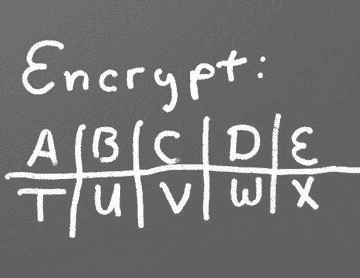 Encrypt:
A B C D E
T U V W X